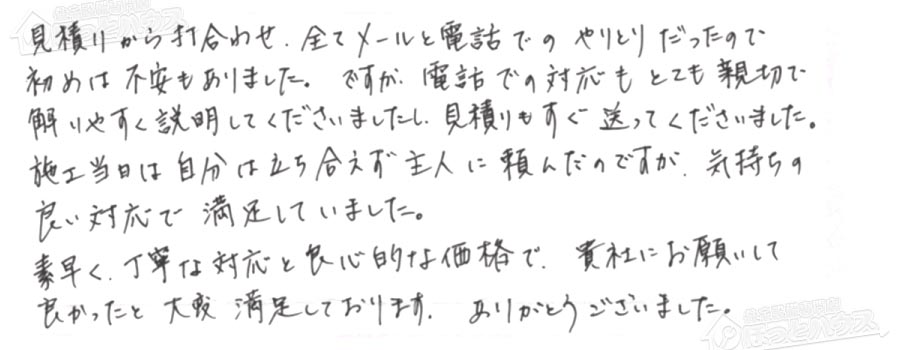 見積りから打合わせ、全てメールと電話でのやりとりだったので
初めは不安もありました。ですが、電話での対応もとても親切で
解りやすく説明してくださいましたし、見積りもすぐ送ってくださいました。
施工当日は自分は立ち合えず主人に頼んだのですが、気持ちの
良い対応で満足していました。
素早く、丁寧な対応と良心的な価格で、貴社にお願いして
良かったと大変満足しております。ありがとうございました。
ほっとハウス